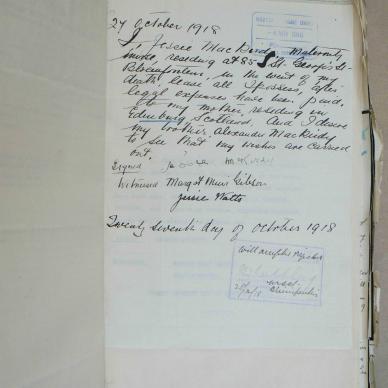 27 October 1918
I Jessie MacBird Maternity
nurse, residing at 85 St. George's St.
Bloemfontein, in the event of my
death leave all I possess, after
legal expenses have been paid,
to my mother, residing in
Edinburg Scotland. And I desire
my brother Alexander
to see that my wishes are carried
out.
Signed
Witnessed Margt Muir Gibson
Jessie Watts
Twenty seventh day of October 1918
Will